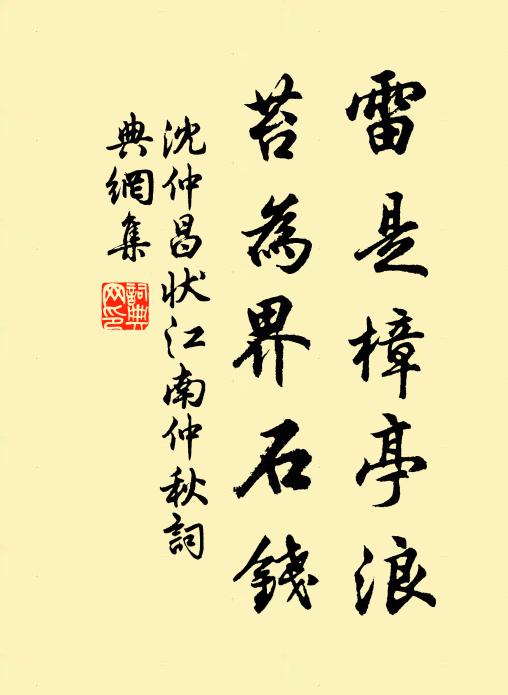 雷是樟亭浪
苔為界石錢
沈仲昌狀江南仲秋詞
典網集
詞典
网印